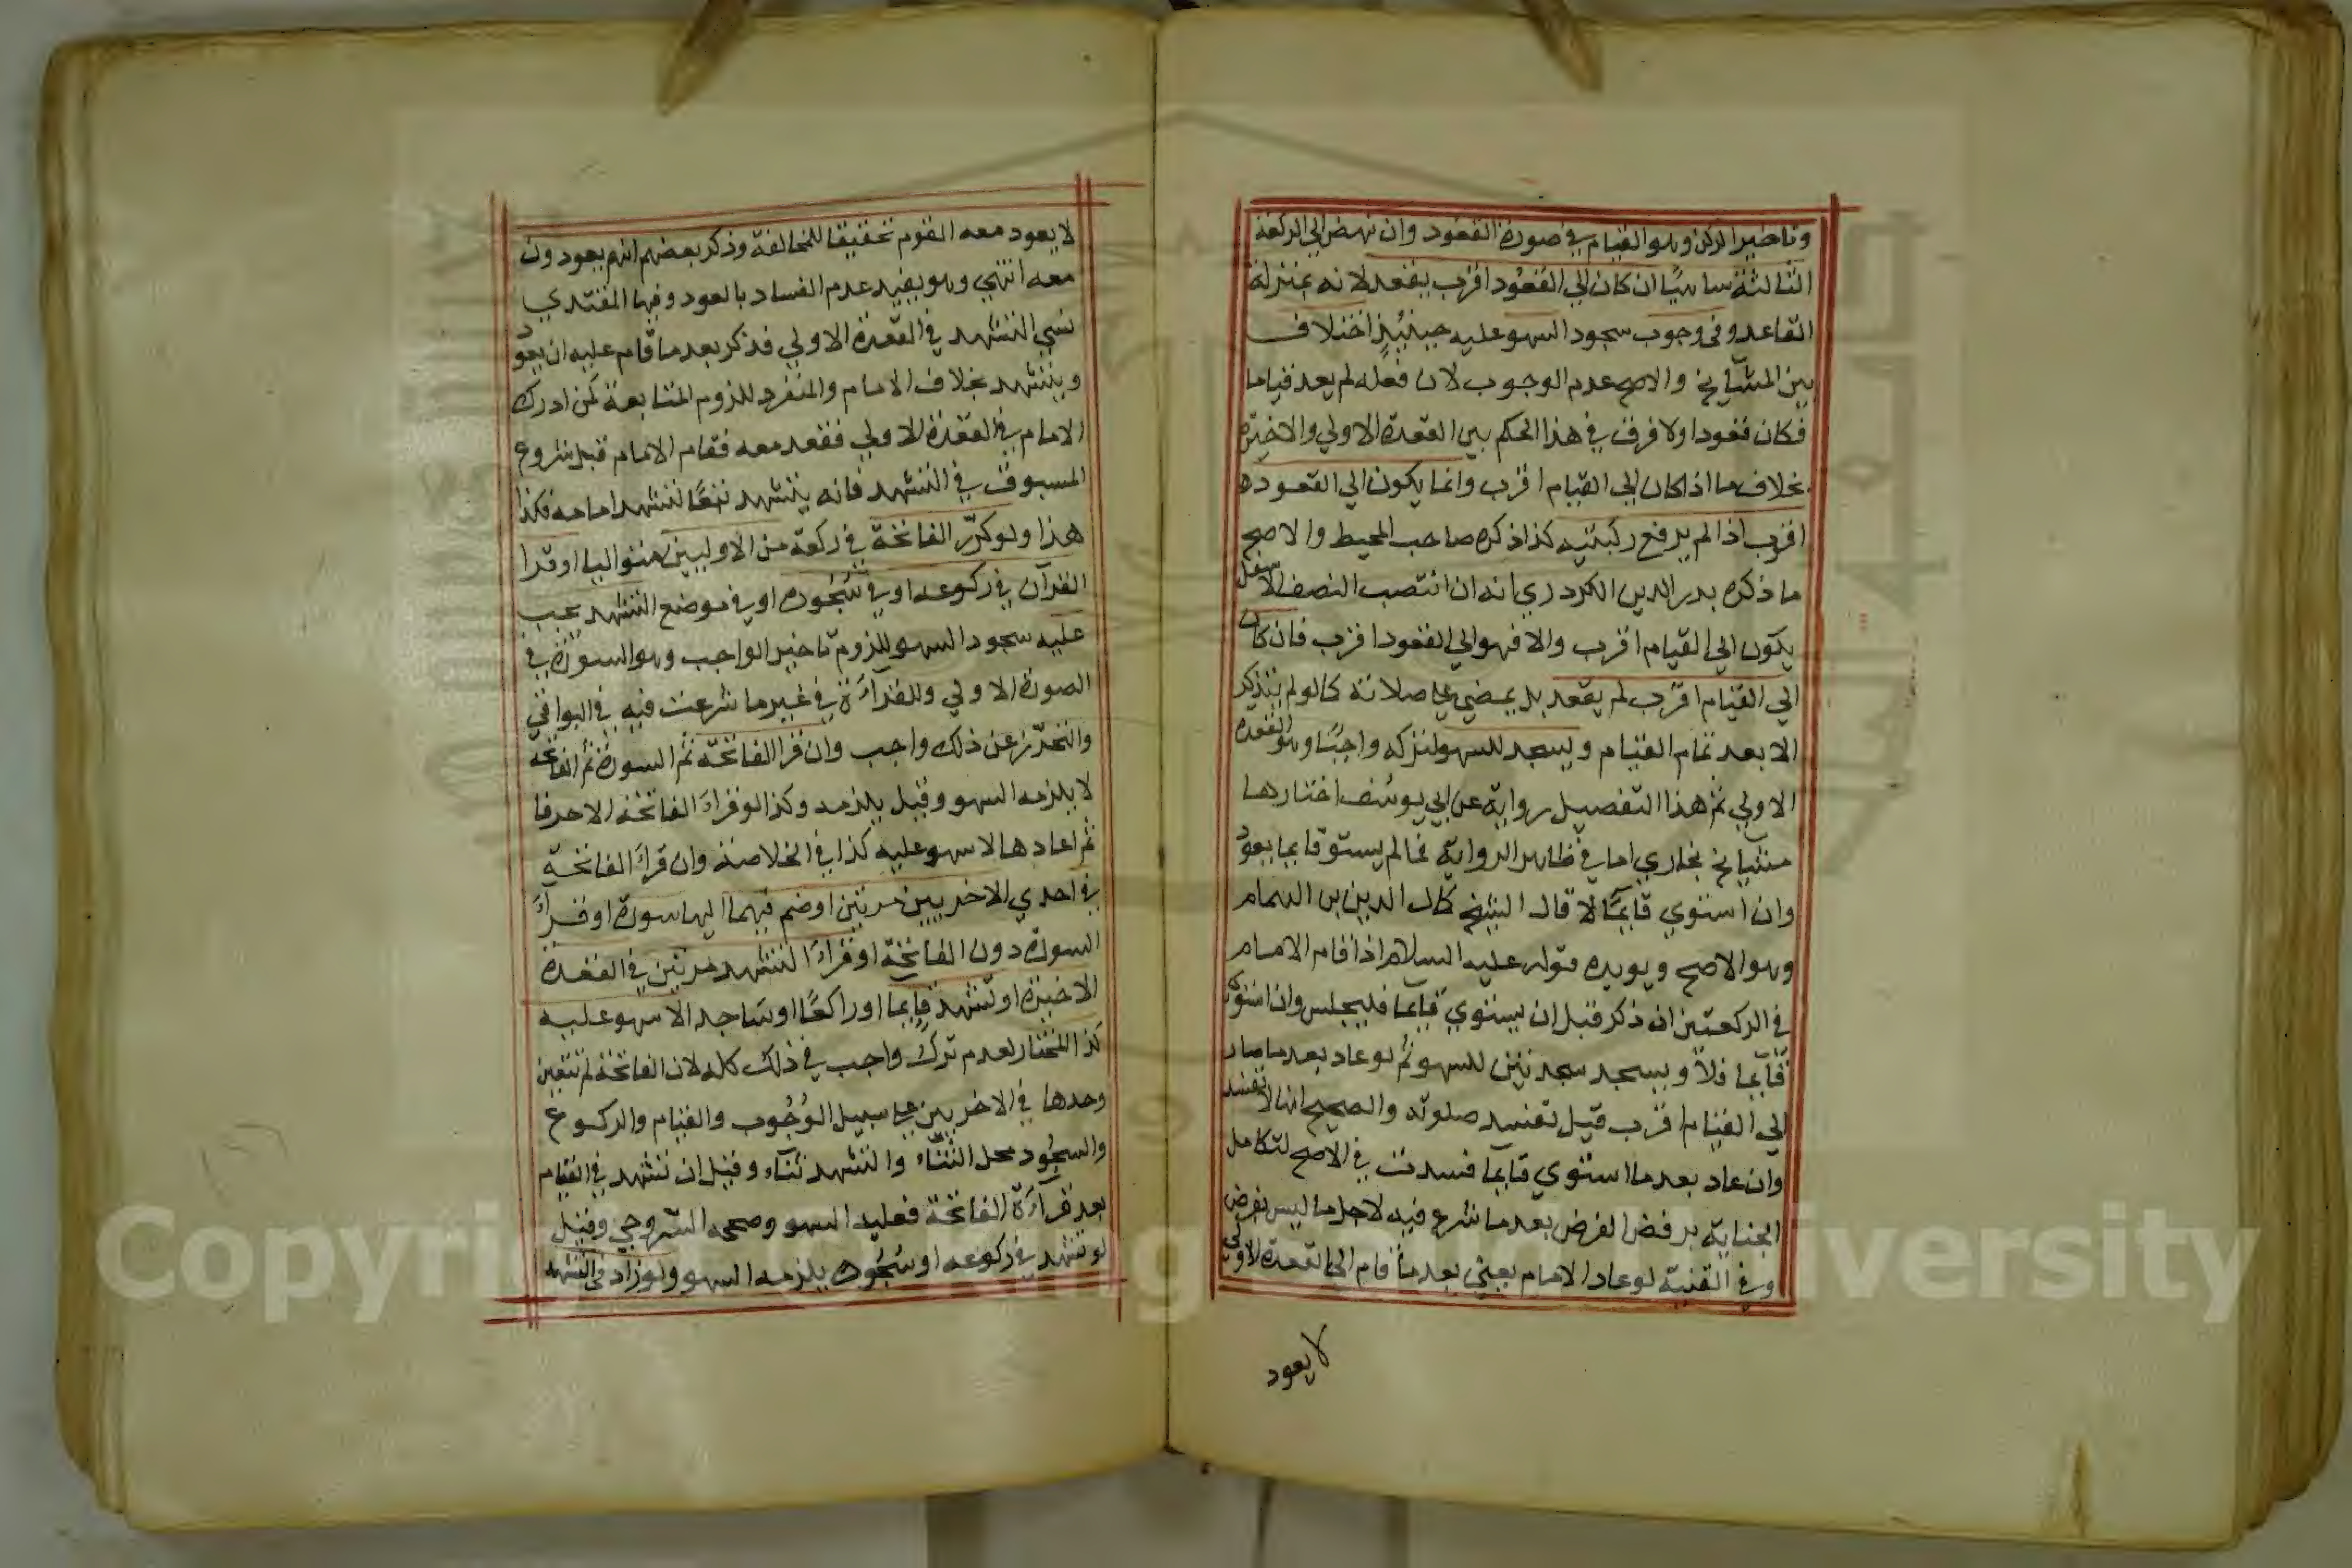 وتاخير الركن وهو القيام في صورة القعود وان نهض الي الركعة
الثالثة ساهيًا ان كان الي القعُود اقرب يقعد لانه بمنزلة
القاعد وفي وجوب سجود السهو عليه حينئذٍ اختلاف
بين المشآيخ والاصح عدم الوجوب لان فعله لم يعد قياما
فكان قعودا ولا فرق في هذا الحكم بين القعدة الاولي والاخيرة
بخلاف ما اذا كان الي القيام اقرب وانما يكون الي القعود
اقرب اذا لم يرفع ركبتيه كذا ذكره صاحب المحيط والاصح
ما ذكره بدر الدين الكردري انه ان انتصب النصف الاسفل
يكون الي القيام اقرب والا فهو الي القعود اقرب فان كان
الي القيام اقرب لم يقعد بل يمضي علي صلاته كما لو لم يتذكر
الا بعد تمام القيام ويسجد للسهو لتركه واجبًا وهو القعدة
الاولي ثم هذا التفصيل رواية عن ابي يوسُف اختارها
مشايخ بخاري اما في ظاهر الرواية فما لم يستو قايما يعود
وان استوي قايمًا لا قال الشيخ كمال الدين بن الهمام
وهو الاصح ويويده قوله عليه السلام اذا قام الامام
في الركعتين ان ذكر قبل ان يستوي قايما فليجلس وان استوي
قآيما فلاً ويسجد سجدتين للسهو ثم لو عاد بعد ما صار
الي القيام اقرب قيل تفسد صلوته والصحيح انها لا تفسد
وان عاد بعد ما استوي قايما فسدت في الاصح لتكامل
الجناية برفض الفرض بعد ما شرع فيه لاجل ما ليس بفرض
وفي القنية لو عاد الامام يعني بعد ما قام الي القعدة الاولي
لا يعود
لا يعود معه القوم تحقيقا للمخالفة وذكر بعضهم انهم يعودون
معه انتهي وهو يفيد عدم الفساد بالعود وفيها المقتدي
نسي التشهد في القعدة الاولي فذكر بعد ما قام عليه ان يعود
ويتشهد بخلاف الامام والمنفرد للزوم المتابعة كمن ادرك
الامام في القعدة الاولي فقعد معه فقام الامام قبل شروع
المسبوق في التشهد فانه يتشهد تبعًا لتشهد امامه فكذا
هذا ولو كرّر الفاتحة في ركعة من الاوليين متواليا او قرا
القرآن في ركوعه او في سُجُوده او في موضع التشهد يجب
عليه سجود السهو للزوم تاخير الواجب وهو السورة في
الصورة الاولي وللقرآءة في غير ما شرعت فيه في البواقي
والتحرّز عن ذلك واجب وان قرا الفاتحة ثم السورة ثم الفاتحة
لا يلزمه السهو وقيل يلزمه وكذا لو قراءَ الفاتحة الا حرفا
ثم اعادها لا سهو عليه كذا في الخلاصة وان قراءَ الفاتحة
في احدي الاخريين مرتين او ضم فيهما اليها سورة او قراءَ
السورة دون الفاتحة او قراءَ التشهد مرتين في القعدة
الاخيرة او تشهد قايما او راكعًا او ساجدا لا سهو عليه
كذا المختار لعدم ترك واجب في ذلك كله لان الفاتحة لم تتعين
وحدها في الاخريين علي سبيل الوُجُوب والقيام والركوع
والسجُود محل الثنّاء والتشهد ثنآء وقيل ان تشهد في القيام
بعد قرآءة الفاتحة فعليه السهو وصححه السّروجي وقيل
لو تشهد في ركوعه او سُجُوده يلزمه السهو ولو زاد في التشهد